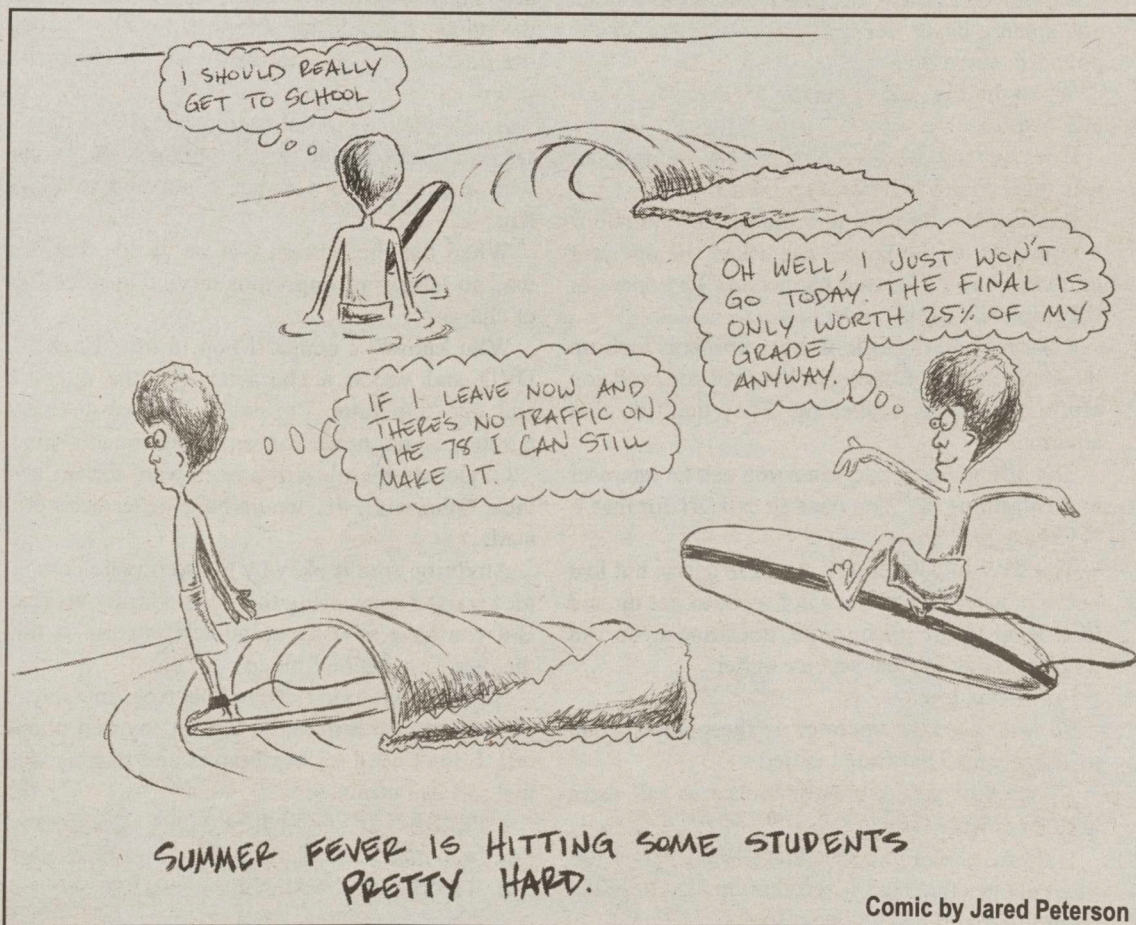 I SHOULD REALLY
GET TO SCHOOL
IF I LEAVE NOW AND
THERE'S NO TRAFFIC ON
THE 78 I CAN STILL
MAKE IT.
OH WELL, I JUST WON'T
GO TODAY. THE FINAL IS
ONLY WORTH 25% OF MY
GRADE
ANYWAY.
SUMMER FEVER IS HITTING SOME STUDENTS
PRETTY HARD.
Comic by Jared Peterson